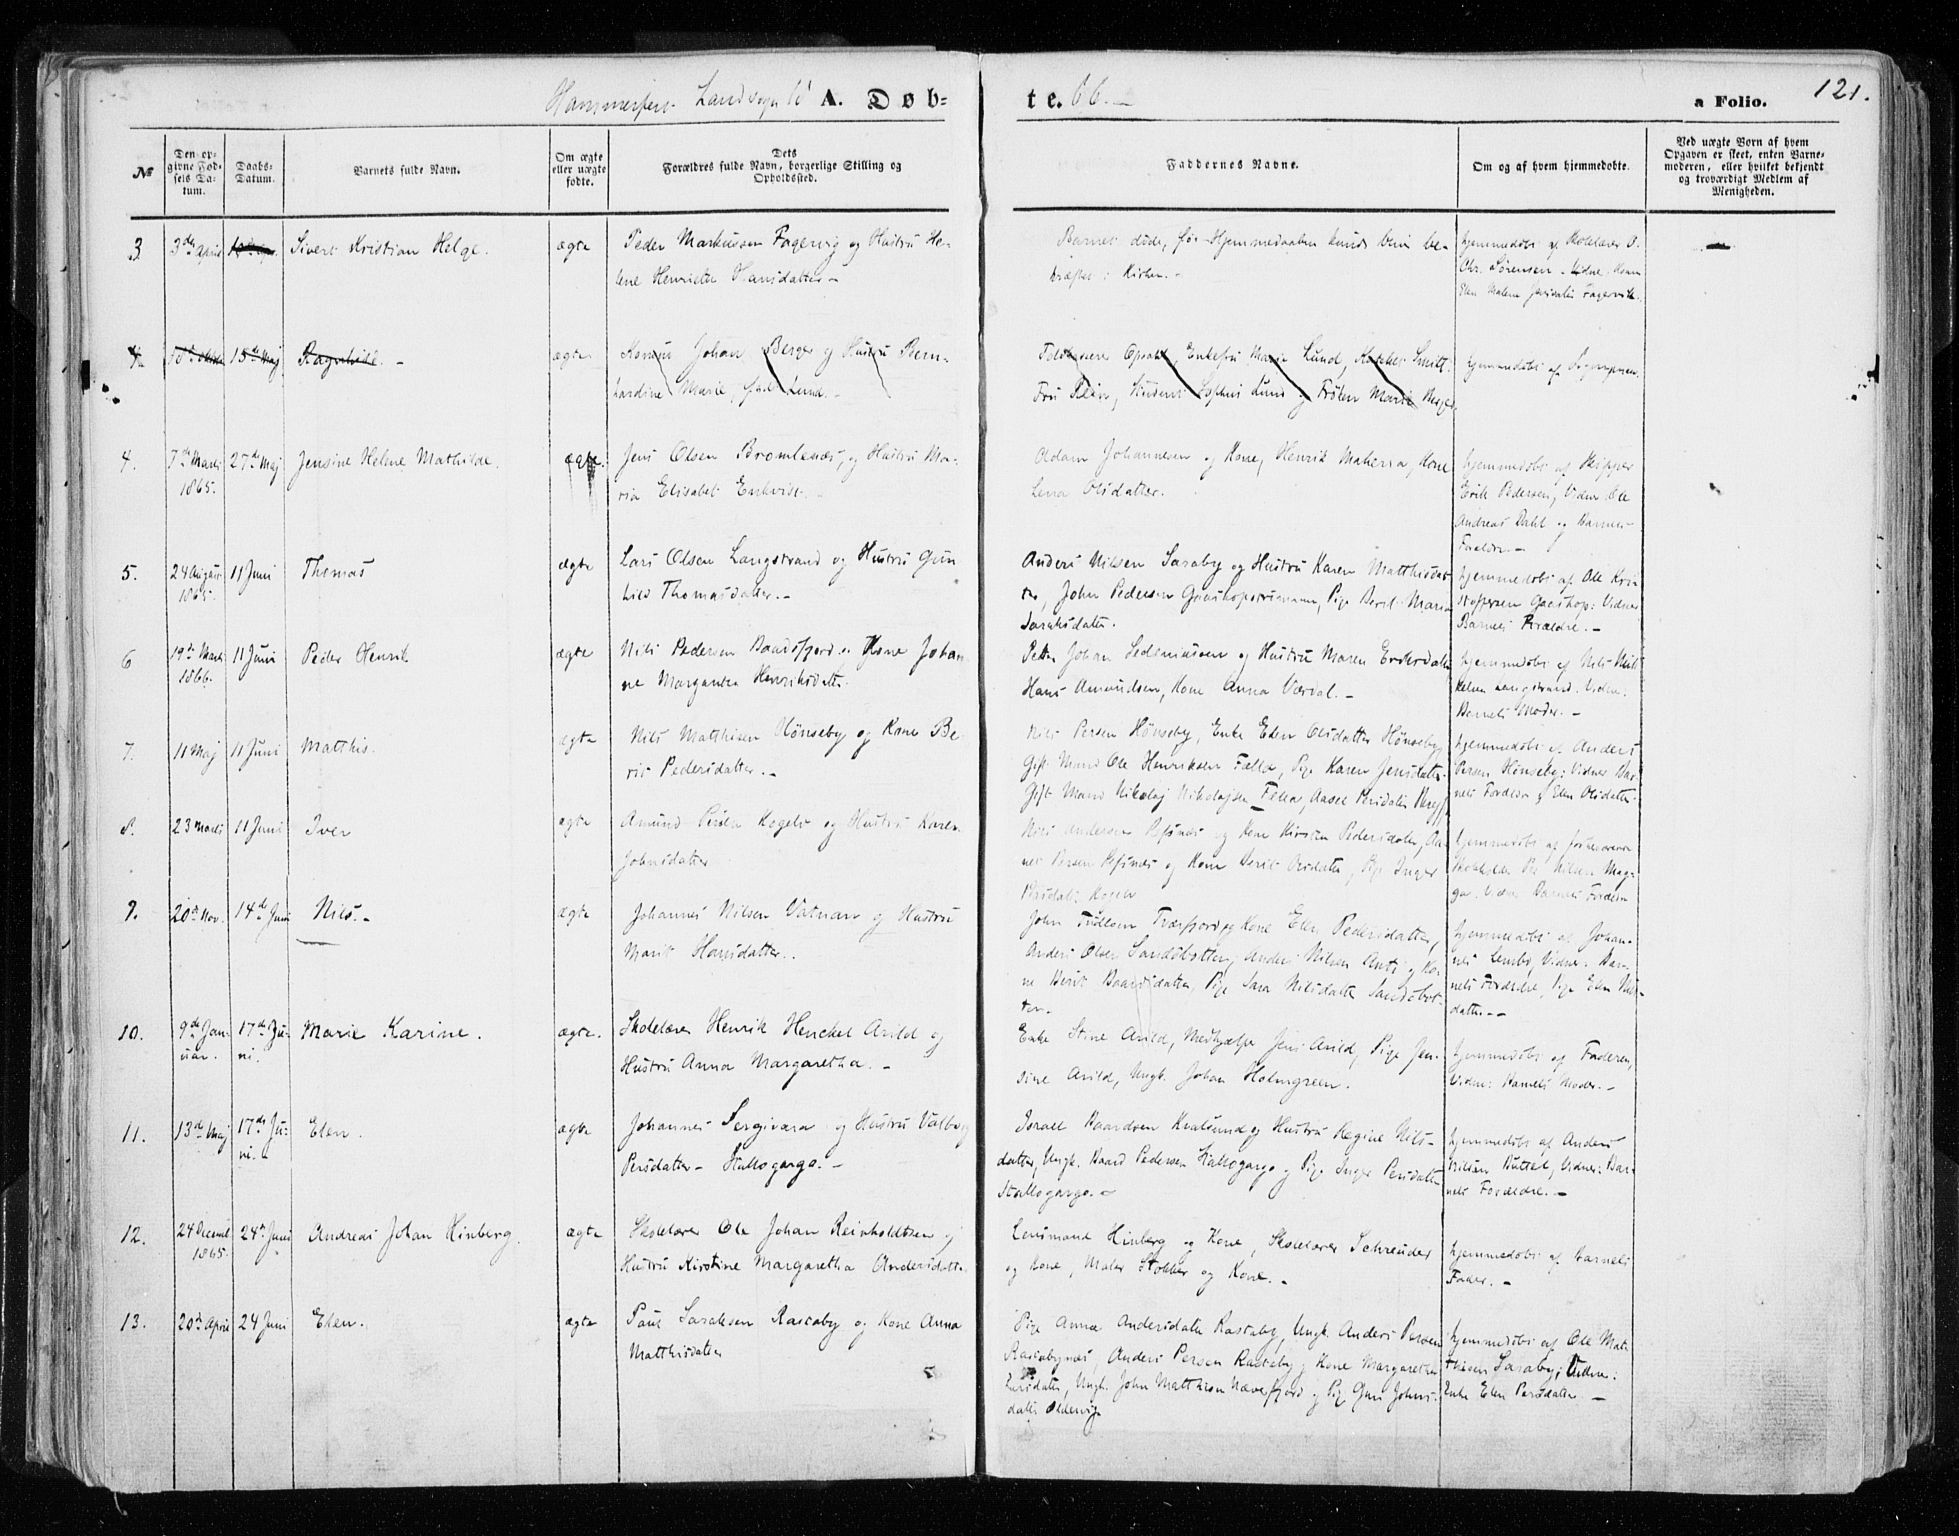 Hammerfest Landsogn 18 A. Døb=
te. 66. —
a Folio.
121.
№
Den op=
givne Fød=
sels Da=
tum.
Daabs=
Datum.
Barnets fulde Navn.
Om ægte
eller uægte
fødte.
Dets
Forældres fulde Navn, borgerlige Stilling og
Opholdssted.
Faddernes Navne.
Om og af hvem hjemmedøbte.
Ved uægte Børn af hvem
Opgaven er skeet, enten Barne=
moderen, eller hvilket bekjendt
og troværdigt Medlem af
Menigheden.
3 3de April Sivert Kristian Helge. ægte Peder Markussen Fagervig og Hustru He-
lene Henriette Hansdatter —
Barnet døde, før Hjemmedaaben kunde blive be-
kræftet i Kirken. —
hjemmedøbt af Skolelærer O.
Chr. Sørensen. Vidne: Kone
Elen Malene Jensdatter Fagervik.
4. 15de Maj Ragnhild. — ægte Johan Berger og Hustru Bern-
hardine Marie, født Lund. —
Enkefru Marie Lund,
Fru Student Sophus Lund og Frøken Marie
hjemmedøbt af Sognepræsten.
4. 7de Marts
1865. 27de Maj Jensine Helene Mathilde. ægte. Jens Olsen Bromlenæs, og Hustru Ma-
ria Elisabet Enkvist. —
Adam Johannesen og Kone, Henrik Kone
Lena Olsdatter.
hjemmedøbt af Skipper
Erik Pedersen, Vidne Ole
Andreas Dahl og Barnets
Forældre. —
5. 24 August
1865. 11 Juni Thomas ægte Lars Olsen Langstrand og Hustru Gun
hild Thomasdatter. —
Anders Nilsen Saraby og Hustru Karen Matthisdat-
ter, John Pedersen Pige Berit Maria
Sarahsdatter.
hjemmedøbt af Ole Kri-
stoffersen Gaashop: Vidner
Barnets Forældre. —
6 19de Marts
1866. 11 Juni Peder Henrik ægte Nils Pedersen Baadsfjord og Kone Johan-
ne Margaretha Henriksdatter.
Petter Johan og Hustru Maren Eriksdatter
Hans Amundsen, Kone Anna Værdal. —
hjemmedøbt af Nils Mik-
kelsen Langstrand. Vidne:
Barnets Moder. —
7. 11 Maj 11 Juni Matthis. ægte Nils Matthisen Hønseby og Kone Be-
rit Pedersdatter. —
Nils Persen Hønseby, Enke Elen Olsdatter Hønseby,
Gift Mand Ole Henriksen Pige Karen Jensdatter.
Gift Mand Nikolaj Nikolajsen
hjemmedøbt af Anders
Persen Hønseby; Vidner Bar-
nets Forældre og Elen Olsdatter.
8. 23 Marts 11 Juni Iver ægte Amund Persen Kogelv og Hustru Karen
Johnsdatter
Nils Andersen Refsnæs og Kone Kirsten Pedersdatter,
Persen Refsnæs og Kone Berit Olsdatter, Pige Inger
Persdatter Kogelv
hjemmedøbt af
Vidne Barnets Forældre
9. 20de Nov. 14de Juni Nils. — ægte Johannes Nilsen Vatnan og Hustru
Marit Hansdatter.
John Tudesen Tværfjord og Kone Elen Pedersdatter,
Anders Olsen Sandøbotten, Anders Nilsen Anti og Ko-
ne Berit Baardsdatter, Pige Sara Nilsdatter Sandøbot-
ten.
hjemmedøbt af Johan-
nes Vidner: Bar-
nets Forældre, Pige Elen
datter. —
10. 9de Jan-
uar. 17de Ju-
ni. Marie Karine. ægte. Skolelærer Henrik Henckel Arild og
Hustru Anna Margaretha. —
Enke Stine Arild, Medhjælper Jens Arild, Pige Jen-
sine Arild, Ungk. Johan Holmgreen.
hjemmedøbt af Faderen,
Vidne: Barnets Moder. —
11. 13de Maj 17de Ju-
ni. Elen. ægte Johannes Sergivara og Hustru Valborg
Persdatter — Stallogargo. —
Israel Baardsen Kvalsund og Hustru Regine Nils-
datter, Ungk. Baard Pedersen Stallogargo og Pige Inger Persdatter
Stallogargo. —
hjemmedøbt af Anders
Nilsen Buttel, Vidner: Bar-
nets Forældre. —
12. 24 Decemb.
1865. 24de Juni Andreas Johan Hinberg. ægte Skolelærer Ole Johan Reinholdtsen og
Hustru Kirstine Margaretha Andersdatter
Lensmand Hinberg og Kone, Skolelærer Schreuder
og Kone, Maler Stokker og Kone. —
hjemmedøbt af Barnets
Fader. —
13. 20de April 24 Juni Elen. ægte Paul Sarahsen Rastaby og Kone Anna
Matthisdatter
Pige Anna Andersdatter Rastaby, Ungk. Anders Persen
Rastabynæs, Anders Persen Rastaby og Kone Margaretha
Larsdatter, Ungk. John Matthisen Næverfjord og Pige Guri Johns-
datter Oldervig.
hjemmedøbt af Ole Mat-
thisen Saraby; Vidne:
Enke Elen Persdatter. —